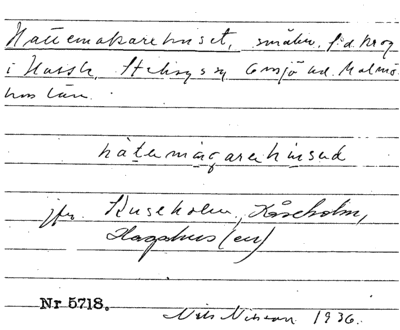 Hattemakarehuset, småbr. f.d. krog
i Hassl. Stehags sn Onsjö hd. Malmö-
hus län.
hatemagarehused
jfr. Kuseholm, Kåseholm,
Hagahus (en)
Nr 5718.
Nils Nilsson 1936.